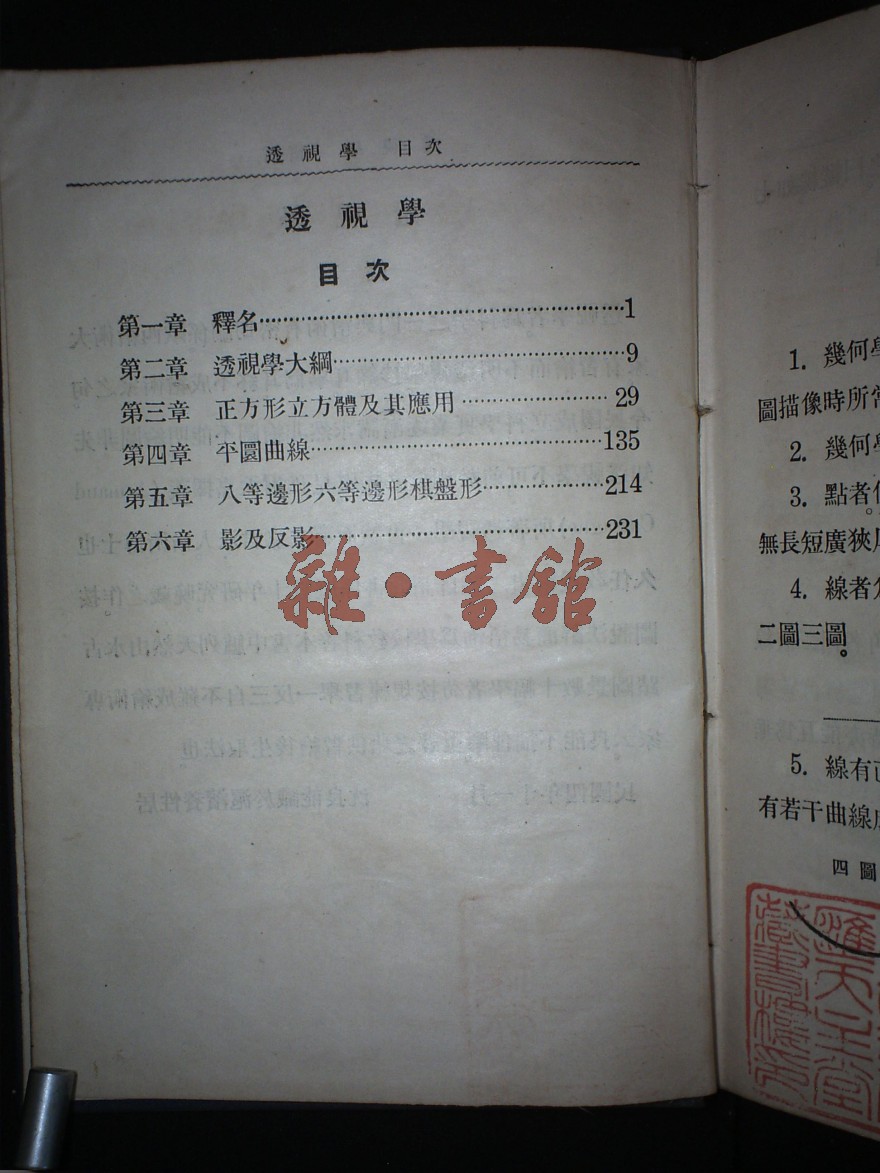 透視學 目次
透視學
目次
第一章 釋名…………1
第二章 透視學大綱…………9
第三章 正方形立方體及其應用…………29
第四章 平圜曲線…………135
第五章 八等邊形六等邊形棋盤形…………214
第六章 影及反影…………231
雜·書館
1. 幾何學
圖描像時所常
2. 幾何學
3. 點者但
無長短廣狹厚
4. 線者
二圖三圖。
5. 線有
有若干曲線
四圖